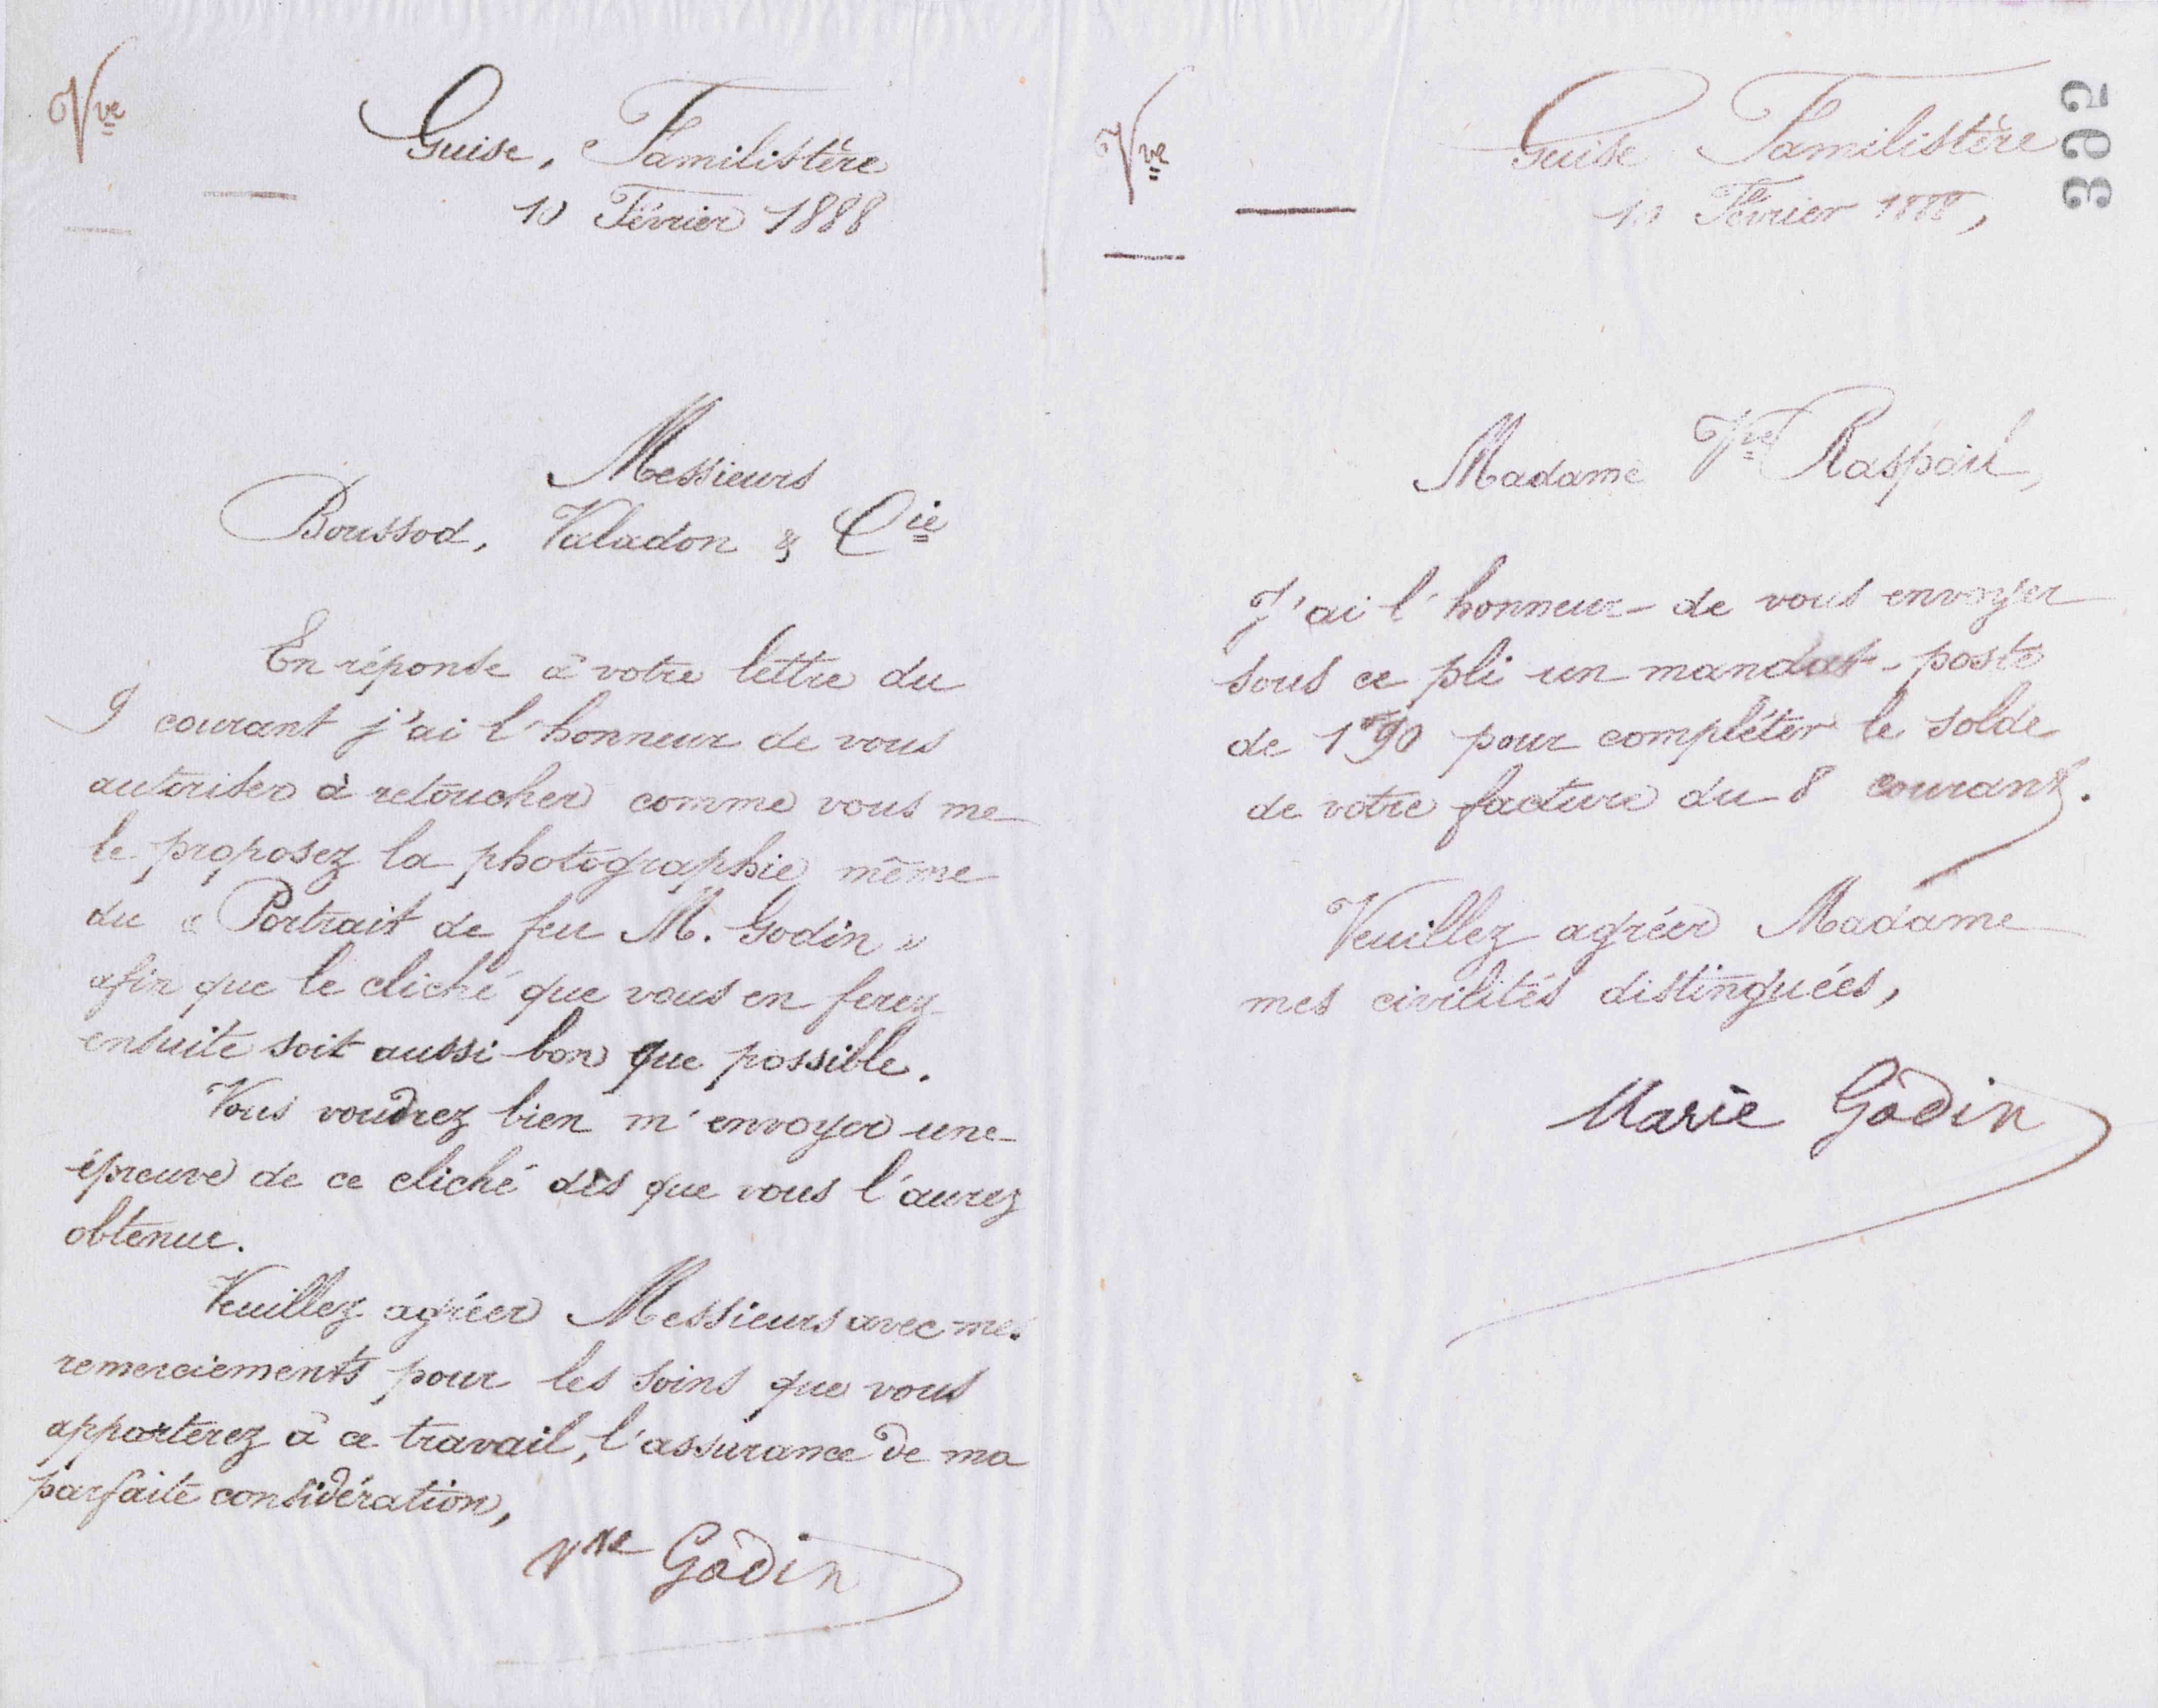 Vve
Guise, Familistère
10 Février 1888
Messieurs
Boussod, Valadon & Cie
En réponse à votre lettre du
9 courant j'ai l'honneur de vous
autoriser à retoucher comme vous me
le proposez la photographie même
du « Portrait de feu M. Godin »
afin que le cliché que vous en ferez
ensuite soit aussi bon que possible.
Vous voudrez bien m'envoyer une
épreuve de ce cliché dès que vous l'aurez
obtenue.
Veuillez agréer Messieurs avec mes
remerciements pour les soins que vous
apporterez à ce travail, l'assurance de ma
parfaite considération,
Vve Godin
392
Vve
Guise Familistère
10 Février 1888,
Madame Vve Raspail,
J'ai l'honneur de vous envoyer
sous ce pli un mandat-poste
de 1f90 pour compléter le solde
de votre facture du 8 courant.
Veuillez agréer Madame
mes civilités distinguées,
Marie Godin